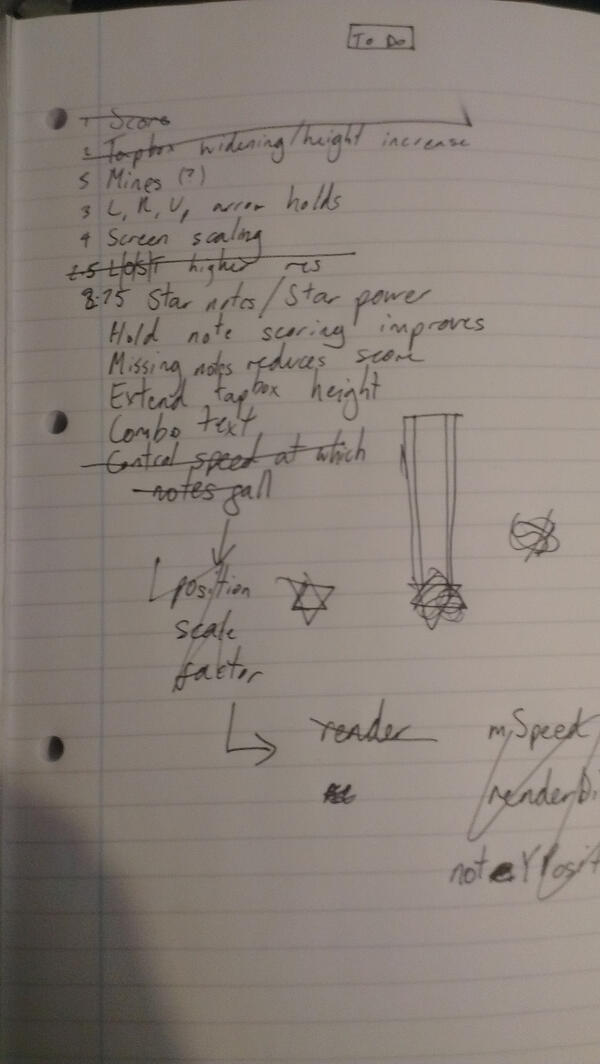 To Do
1 Score
2 Tapbox widening/height increase
5 Mines (?)
3 L, R, U, arrow holds
4 Screen scaling
higher res
Star notes/Star power
Hold note scoring improves
Missing notes reduces score
Extend tapbox height
Combo text
Control speed at which
notes fall
position
scale
factor
render
mSpeed
renderDi
noteYPosit